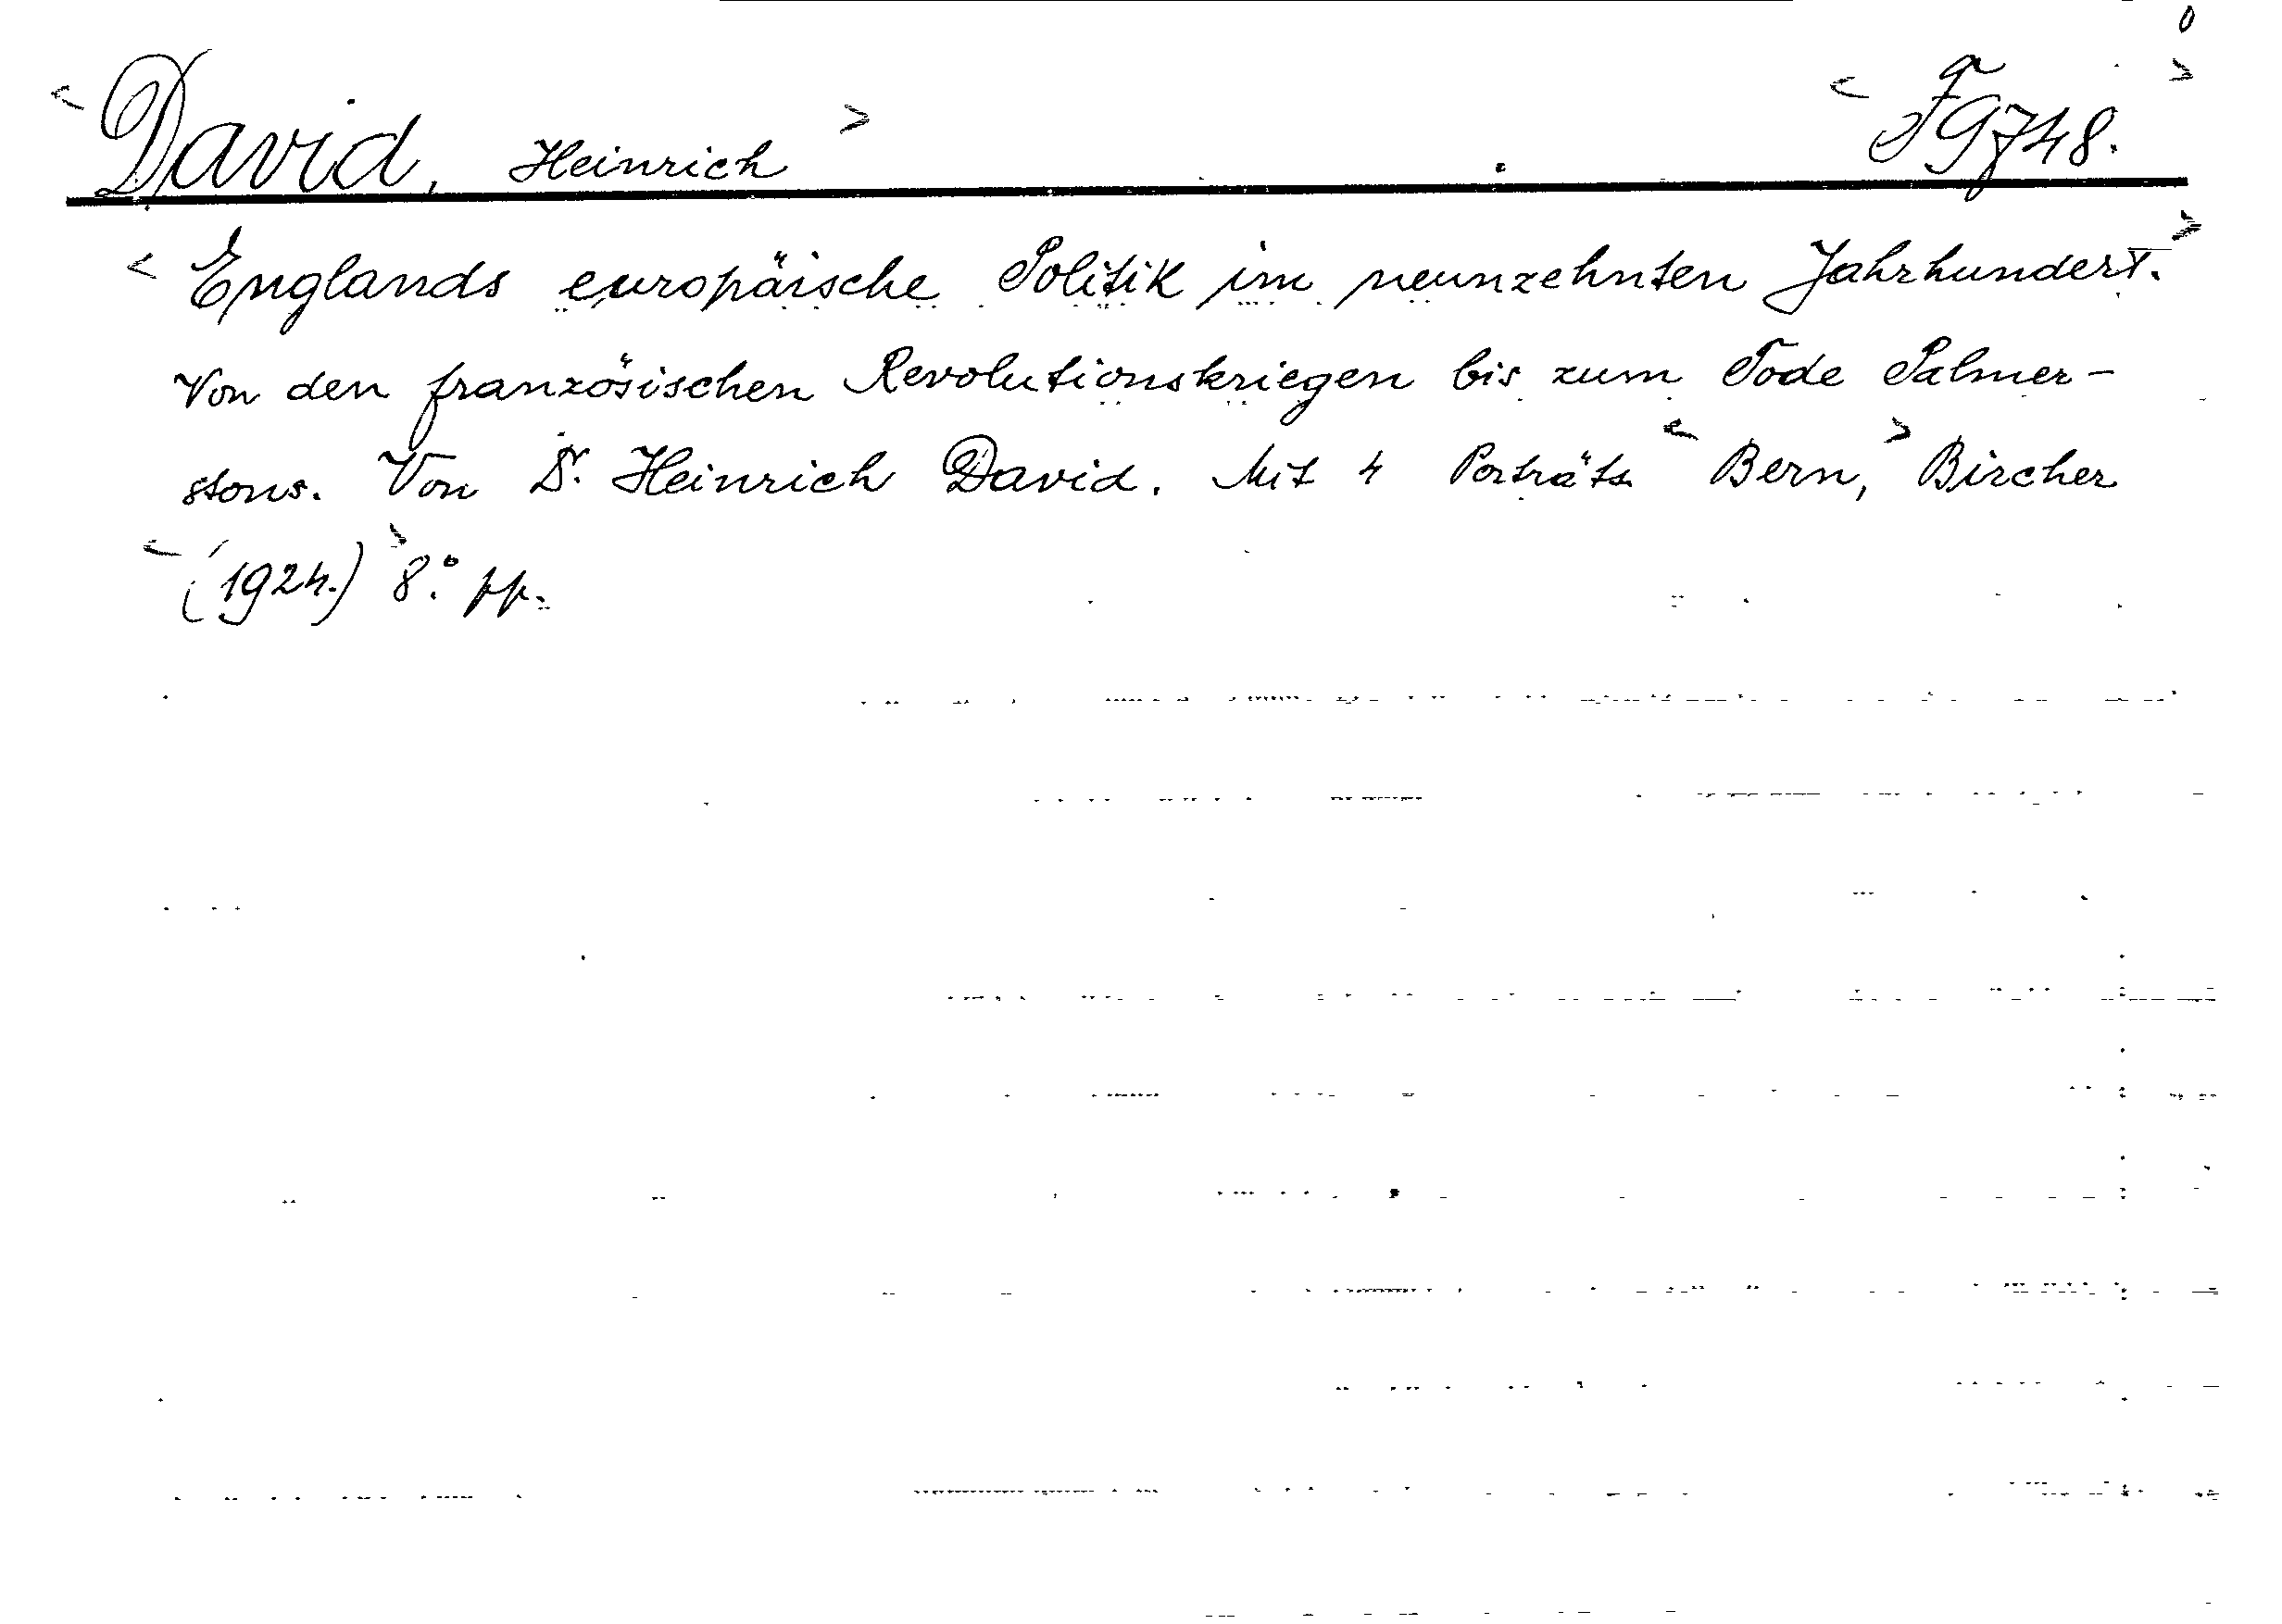 0
< David, Heinrich > < F 9748. >
< Englands europäische Politik im neunzehnten Jahrhundert. >
Von den französischen Revolutionskriegen bis zum Tode Palmer-
stons. Von Dr. Heinrich David. Mit 4 Porträts < Bern, > Bircher
< (1924.) > 8.° pp.